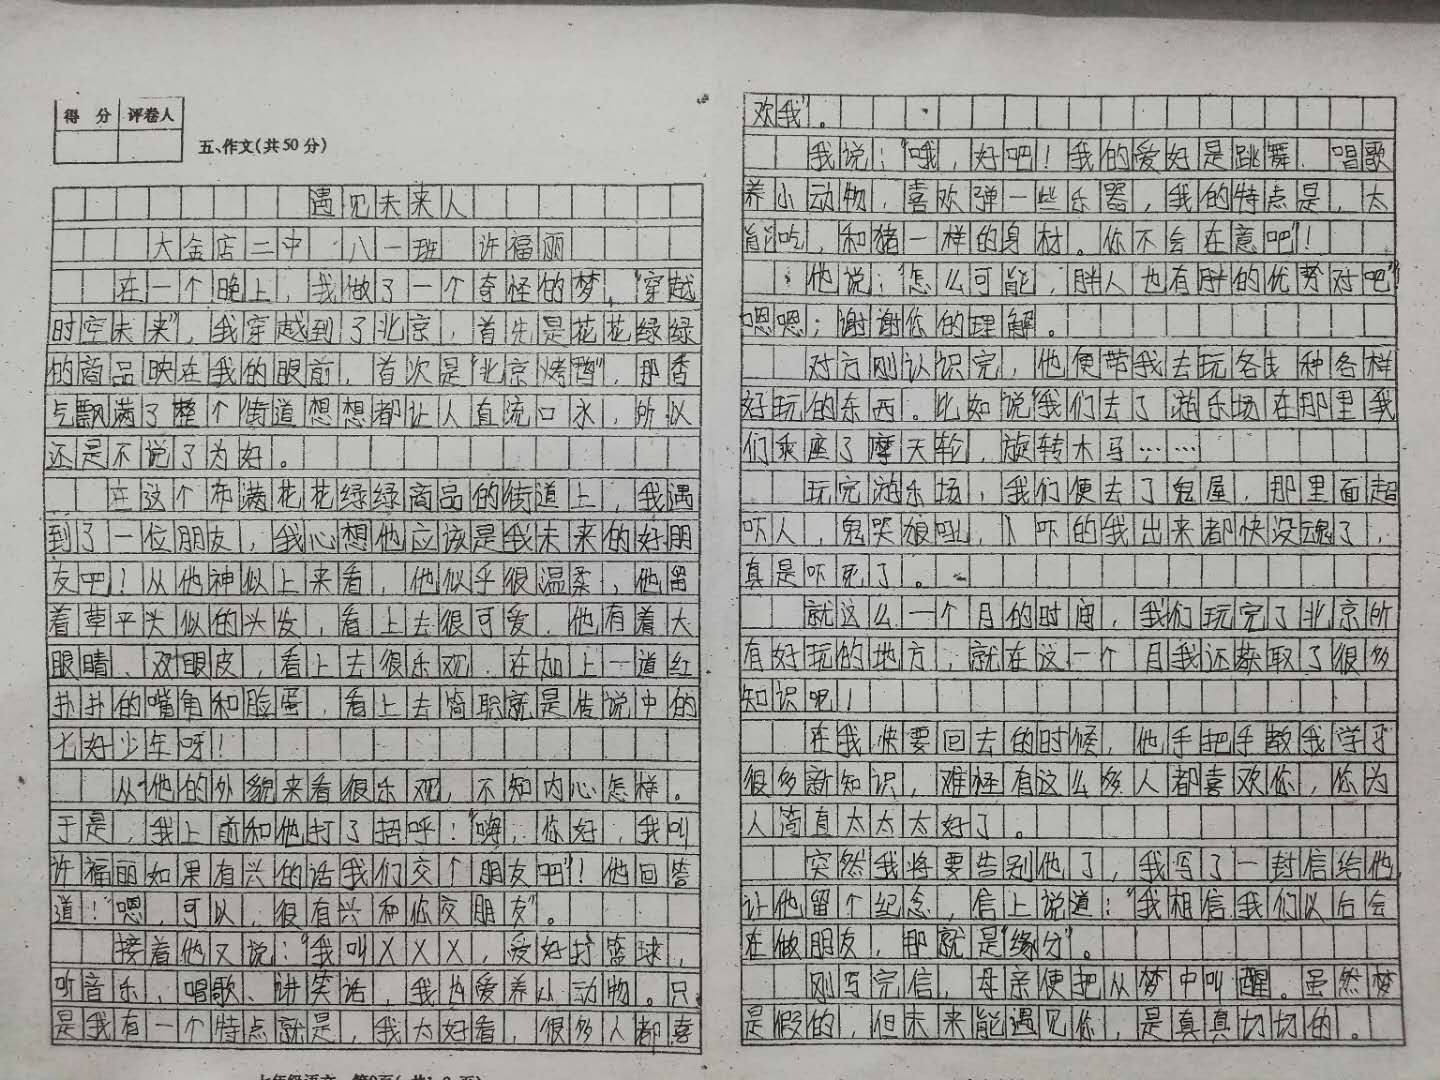 得 分 评卷人
五、作文(共50分)
遇见未来人
大金店二中 八一班 许福丽
在一个晚上，我做了一个奇怪的梦，“穿越
时空未来”，我穿越到了北京，首先是花花绿绿
的商品映在我的眼前，首次是“北京烤鸭”，那香
气飘满了整个街道想想都让人直流口水，所以
还是不说了为好。
在这个布满花花绿绿商品的街道上，我遇
到了一位朋友，我心想他应该是我未来的好朋
友吧！从他神似上来看，他似乎很温柔，他留
着草平头似的头发，看上去很可爱，他有着大
眼睛、双眼皮，看上去很乐观，在加上一道红
扑扑的嘴角和脸蛋，看上去简职就是传说中的
七好少年呀！
从他的外貌来看很乐观，不知内心怎样。
于是，我上前和他打了招呼：“嗨，你好，我叫
许福丽如果有兴的话我们交个朋友吧”！他回答
道！“嗯，可以，很有兴和你交朋友”。
接着他又说：“我叫XXX，爱好打篮球，
听音乐，唱歌、讲笑话，我也爱养小动物。只
是我有一个特点就是，我太好看，很多人都喜
欢我”。
我说：“哦，好吧！我的爱好是跳舞、唱歌
养小动物，喜欢弹一些乐器，我的特点是，太
能吃，和猪一样的身材。你不会在意吧”！
他说：“怎么可能，胖人也有胖的优势对吧”
嗯嗯；谢谢你的理解。
对方刚认识完，他便带我去玩各种各样
好玩的东西。比如说“我们去了游乐场在那里我
们乘座了摩天轮，旋转木马……
玩完游乐场，我们便去了鬼屋，那里面超
吓人，鬼哭狼吼，吓的我出来都快没魂了，
真是吓死了。
就这么一个月的时间，我们玩完了北京所
有好玩的地方，就在这一个月我还获取了很多
知识呢！
在我快要回去的时候，他手把手教我学习
很多新知识，难怪有这么多人都喜欢你，你为
人简直太太太好了。
突然我将要告别他了，我写了一封信给他，
让他留个纪念，信上说道：“我相信我们以后会
在做朋友，那就是“缘分”。
刚写完信，母亲便把从梦中叫醒。虽然梦
是假的，但未来能遇见你，是真真切切的。